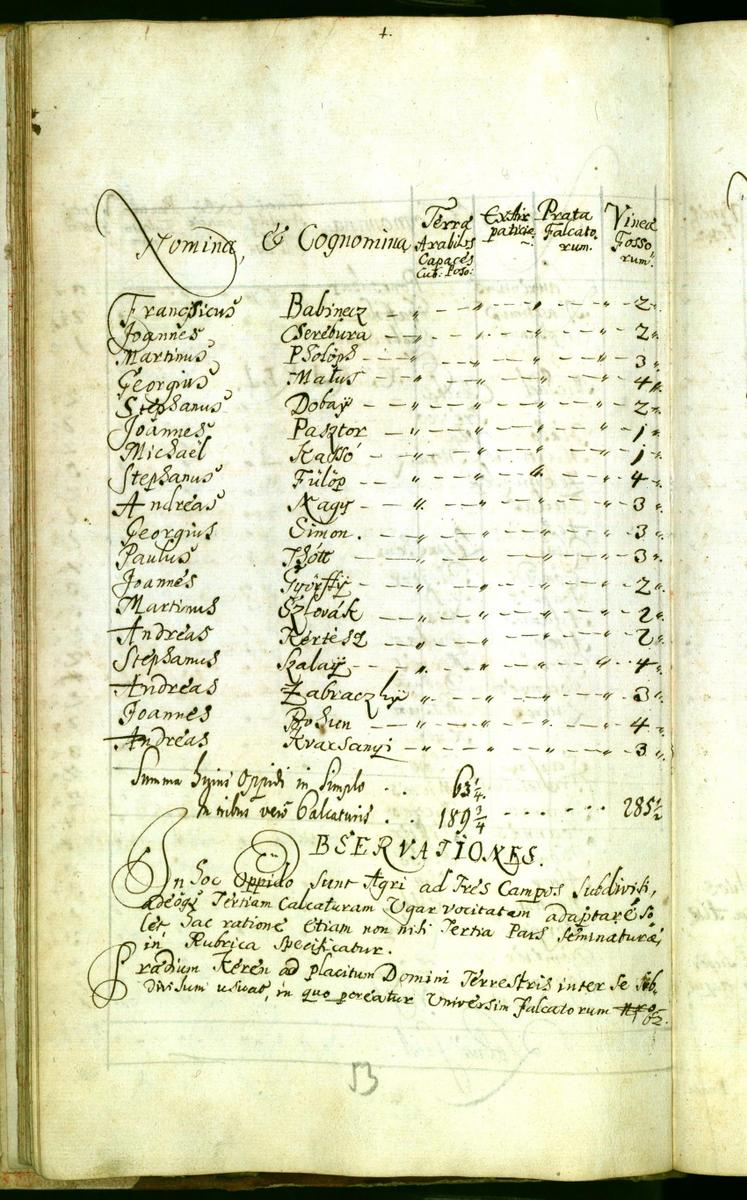 4.
Nomina & Cognomina Terræ Arabiles Capaces Cub: Poso: Extirpaticiæ Prata Falcatorum. Vineæ Fossorum.
Francisicus Babinecz - „ - „ - „ - „ 2„
Joannes Cserebura - „ - „ - „ - „ 2„
Martinus Phölöph - „ - „ - „ - „ 3„
Georgius Matus - „ - „ - „ - „ 4„
Stephanus Dobaÿ - „ - „ - „ - „ 2„
Joannes Pasztor - „ - „ - „ - „ 1„
Michaël Kassó - „ - „ - „ - „ 1„
Stephanus Fülöp - „ - „ - „ - „ 4„
Andreas Nagy - „ - „ - „ - „ 3„
Georgius Simon. - „ - „ - „ - „ 3„
Paulus Thótt - „ - „ - „ - „ 3„
Joannes Györffÿ - „ - „ - „ - „ 2„
Martinus Szlovák - „ - „ - „ - „ 2„
Andreas Kertész - „ - „ - „ - „ 2„
Stephanus Szalaÿ - „ - „ - „ - „ 4„
Andreas Zabraczkÿ - „ - „ - „ - „ 3„
Joannes Bohun - „ - „ - „ - „ 4„
Andreas Kvarsanyi - „ - „ - „ - „ 3„
Summa hujus Oppidi in Simplo . . 63 1/4.
In tribus vero Calcaturis . . 189 3/4 . . . . . . 285 1/2
OBSERVATIONES.
In hoc Oppido sunt Agri ad Tres Campos subdivisi,
adeoq; Tertiam Calcaturam Ugar vocitatam adaptare so
let, hac ratione Etiam non nisi Tertia Pars seminaturæ,
in Rubrica specificatur.
Prædium Keren ad placitum Domini Terrestris inter se sub
divisum usuat, in quo Universim Falcatorum
53